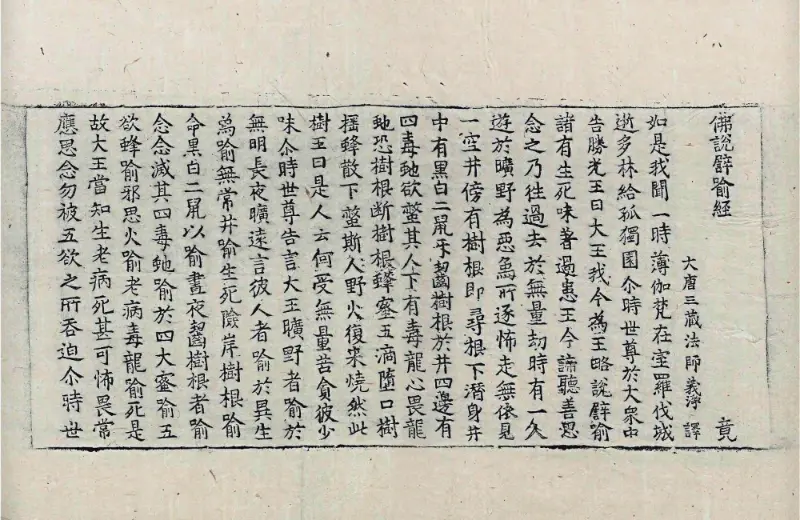 佛說譬喻經 竟
大唐三藏法師義淨 譯
如是我聞一時薄伽梵在室羅伐城
逝多林給孤獨園尒時世尊於大衆中
告勝光王曰大王我今為王略說譬喻
諸有生死味著過患王今諦聽善思
念之乃往過去於無量劫時有一人
遊於曠野為惡象所逐怖走無依見
一空井傍有樹根即尋根下潛身井
中有黑白二鼠牙齧樹根於井四邊有
四毒虵欲螫其人下有毒龍心畏龍
虵恐樹根断樹根蜂蜜五滴墮口樹
搖蜂散下螫斯人野火復来燒然此
樹王曰是人云何受無量苦貪彼少
味尒時世尊告言大王曠野者喻於
無明長夜曠遠言彼人者喻於異生
象喻無常井喻生死險岸樹根喻
命黑白二鼠以喻晝夜齧樹根者喻
念念滅其四毒虵喻於四大蜜喻五
欲蜂喻邪思火喻老病毒龍喻死是
故大王當知生老病死甚可怖畏常
應思念勿被五欲之所吞迫尒時世